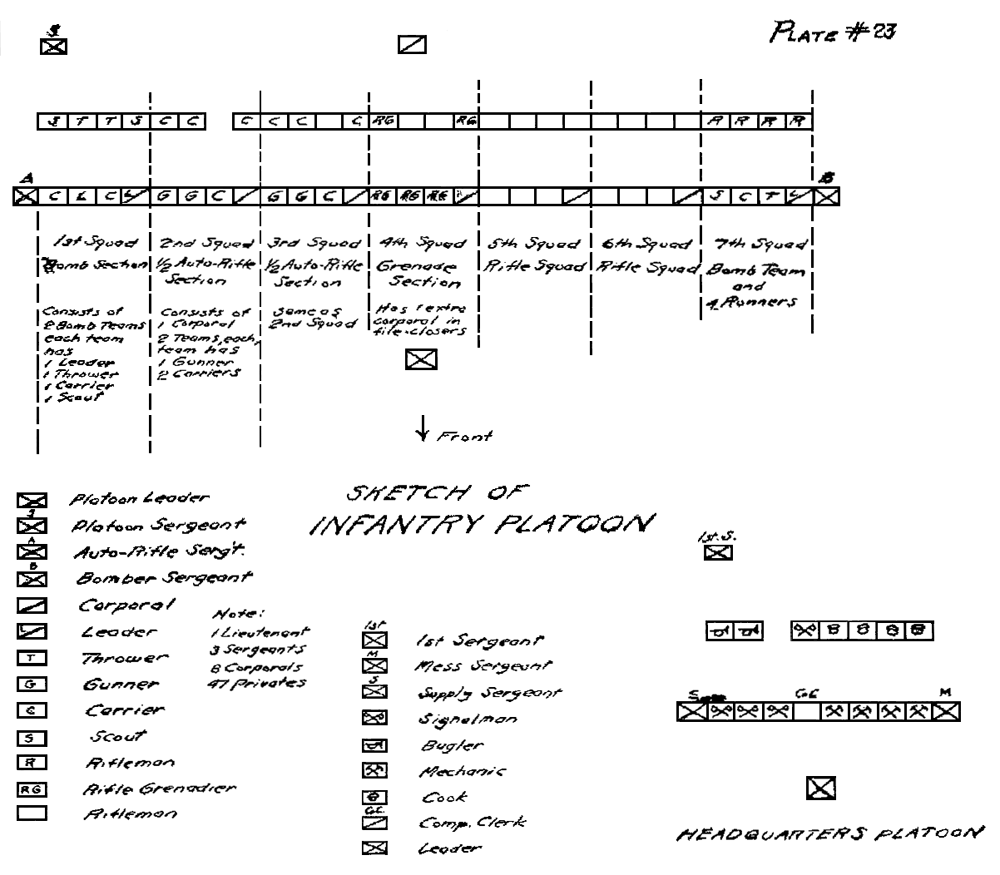 PLATE #23
S T T S C C C C C C RG RG R R R R
A B
C L C L G G C G G C RG RG RG S C T L
1st Squad 2nd Squad 3rd Squad 4th Squad 5th Squad 6th Squad 7th Squad
Bomb Section
Consists of
2 Bomb Teams
each team
has
1 Leader
1 Thrower
1 Carrier
1 Scout
1/2 Auto-Rifle
Section
Consists of
1 Corporal
2 Teams, each
team has
1 Gunner
2 Carriers
1/2 Auto-Rifle
Section
Same as
2nd Squad
Grenade
Section
Has 1 extra
corporal in
file-closers
Rifle Squad
Rifle Squad
Bomb Team
and
4 Runners
Front
SKETCH OF
INFANTRY PLATOON
Platoon Leader
Platoon Sergeant
A Auto-Rifle Serg't.
B Bomber Sergeant
Corporal
L Leader
T Thrower
G Gunner
C Carrier
S Scout
R Rifleman
RG Rifle Grenadier
Rifleman
Note:
1 Lieutenant
3 Sergeants
8 Corporals
47 Privates
1st 1st Sergeant
M Mess Sergeant
S Supply Sergeant
Signalman
Bugler
Mechanic
Cook
Comp. Clerk
Leader
1st.S.
S M
HEADQUARTERS PLATOON